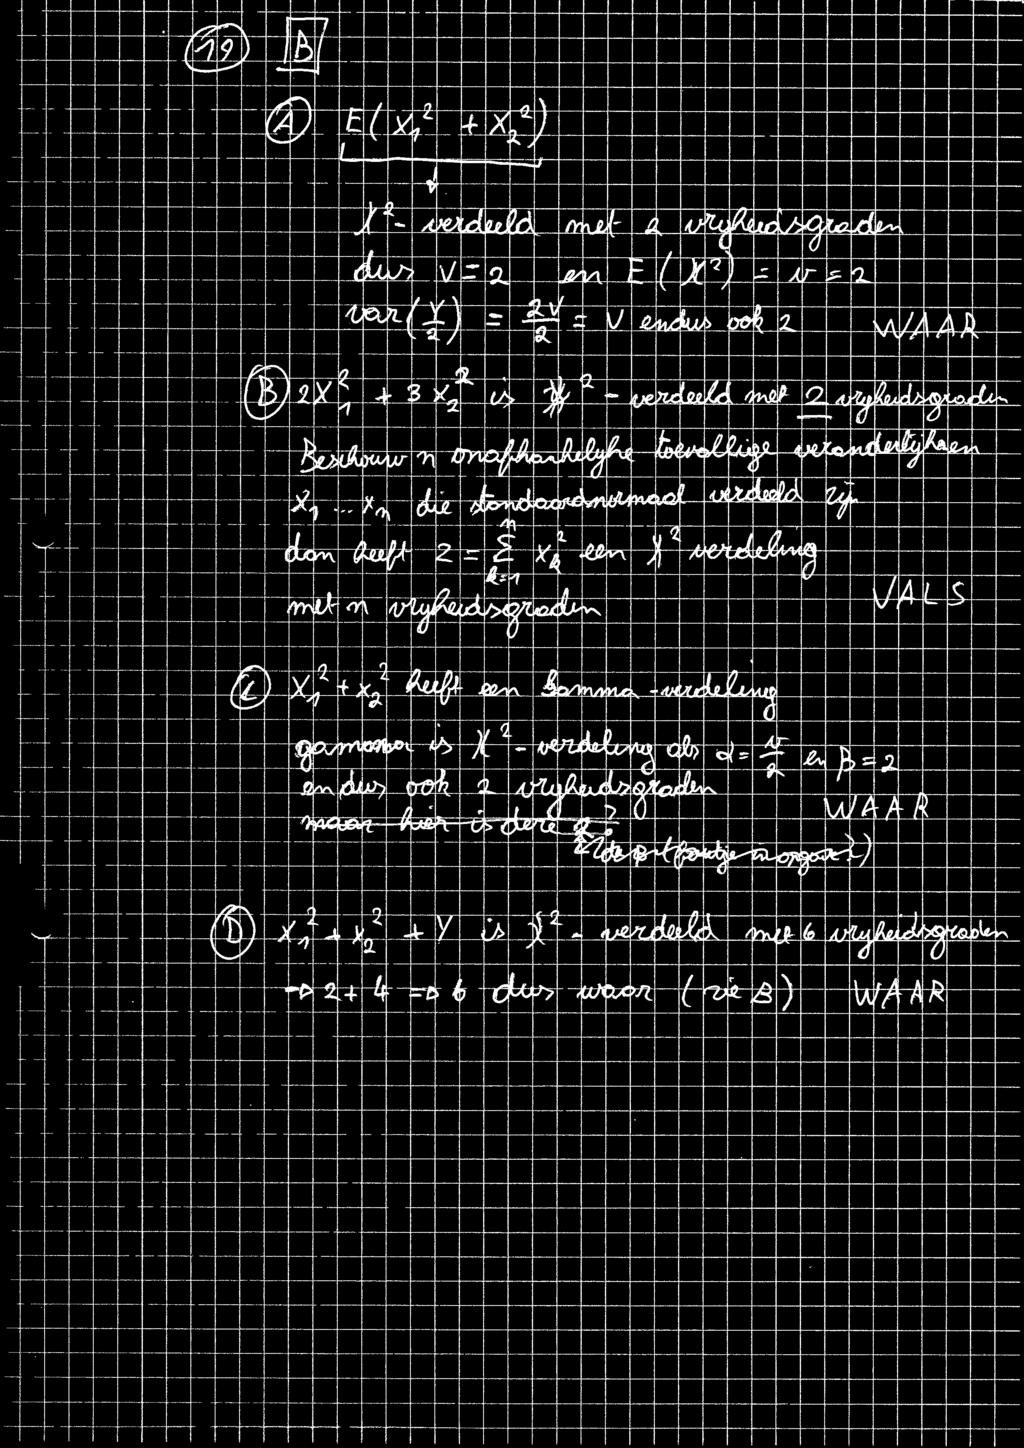 19 B
A E(X₁² + X₂²)
χ²- verdeeld met 2 vrijheidsgraden
dus v = 2 en E(χ²) = v = 2
var(Y/2) = 2v/2 = v en dus ook 2 WAAR
B 2X₁² + 3X₂² is χ² - verdeeld met 2 vrijheidsgraden
Beschouw n onafhankelijke toevallige veranderlijken
X₁ ... Xn die standaardnormaal verdeeld zijn
dan heeft Z = Σ k=1 n Xk² een χ² verdeling
met n vrijheidsgraden VALS
C X₁² + X₂² heeft een Gamma-verdeling
gamma is χ²-verdeling als α = v/2 en β = 2
en dus ook 2 vrijheidsgraden WAAR
maar hier is deze 2?
D X₁² + X₂² + Y is χ² - verdeeld met 6 vrijheidsgraden
→ 2 + 4 ⇒ 6 dus waar (zie B) WAAR